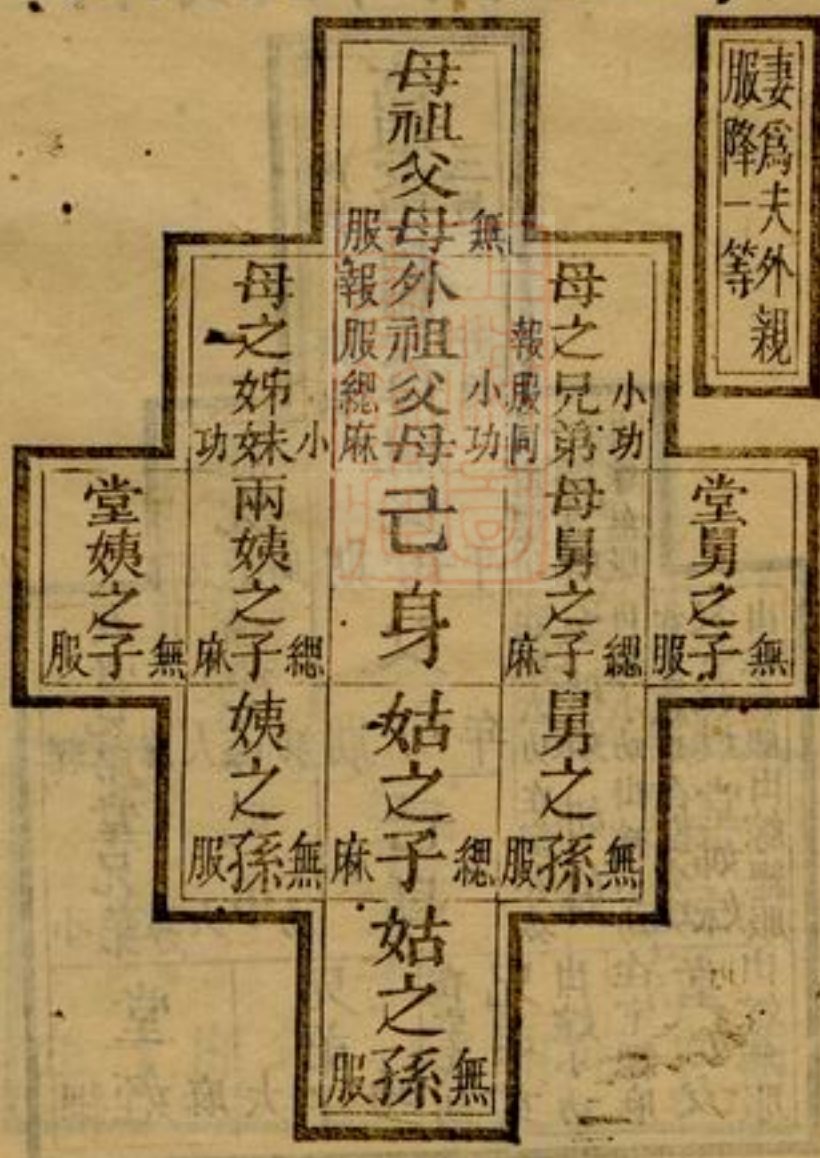 妻爲夫外親
服降一等
母祖父母
無服
母之兄弟
小功
報服同
外祖父母
小功
報服緦麻
母之姊妹
小功
堂舅之子
無服
母舅之子
緦麻
己身
兩姨之子
緦麻
堂姨之子
無服
舅之孫
無服
姑之子
緦麻
姨之孫
無服
姑之孫
無服